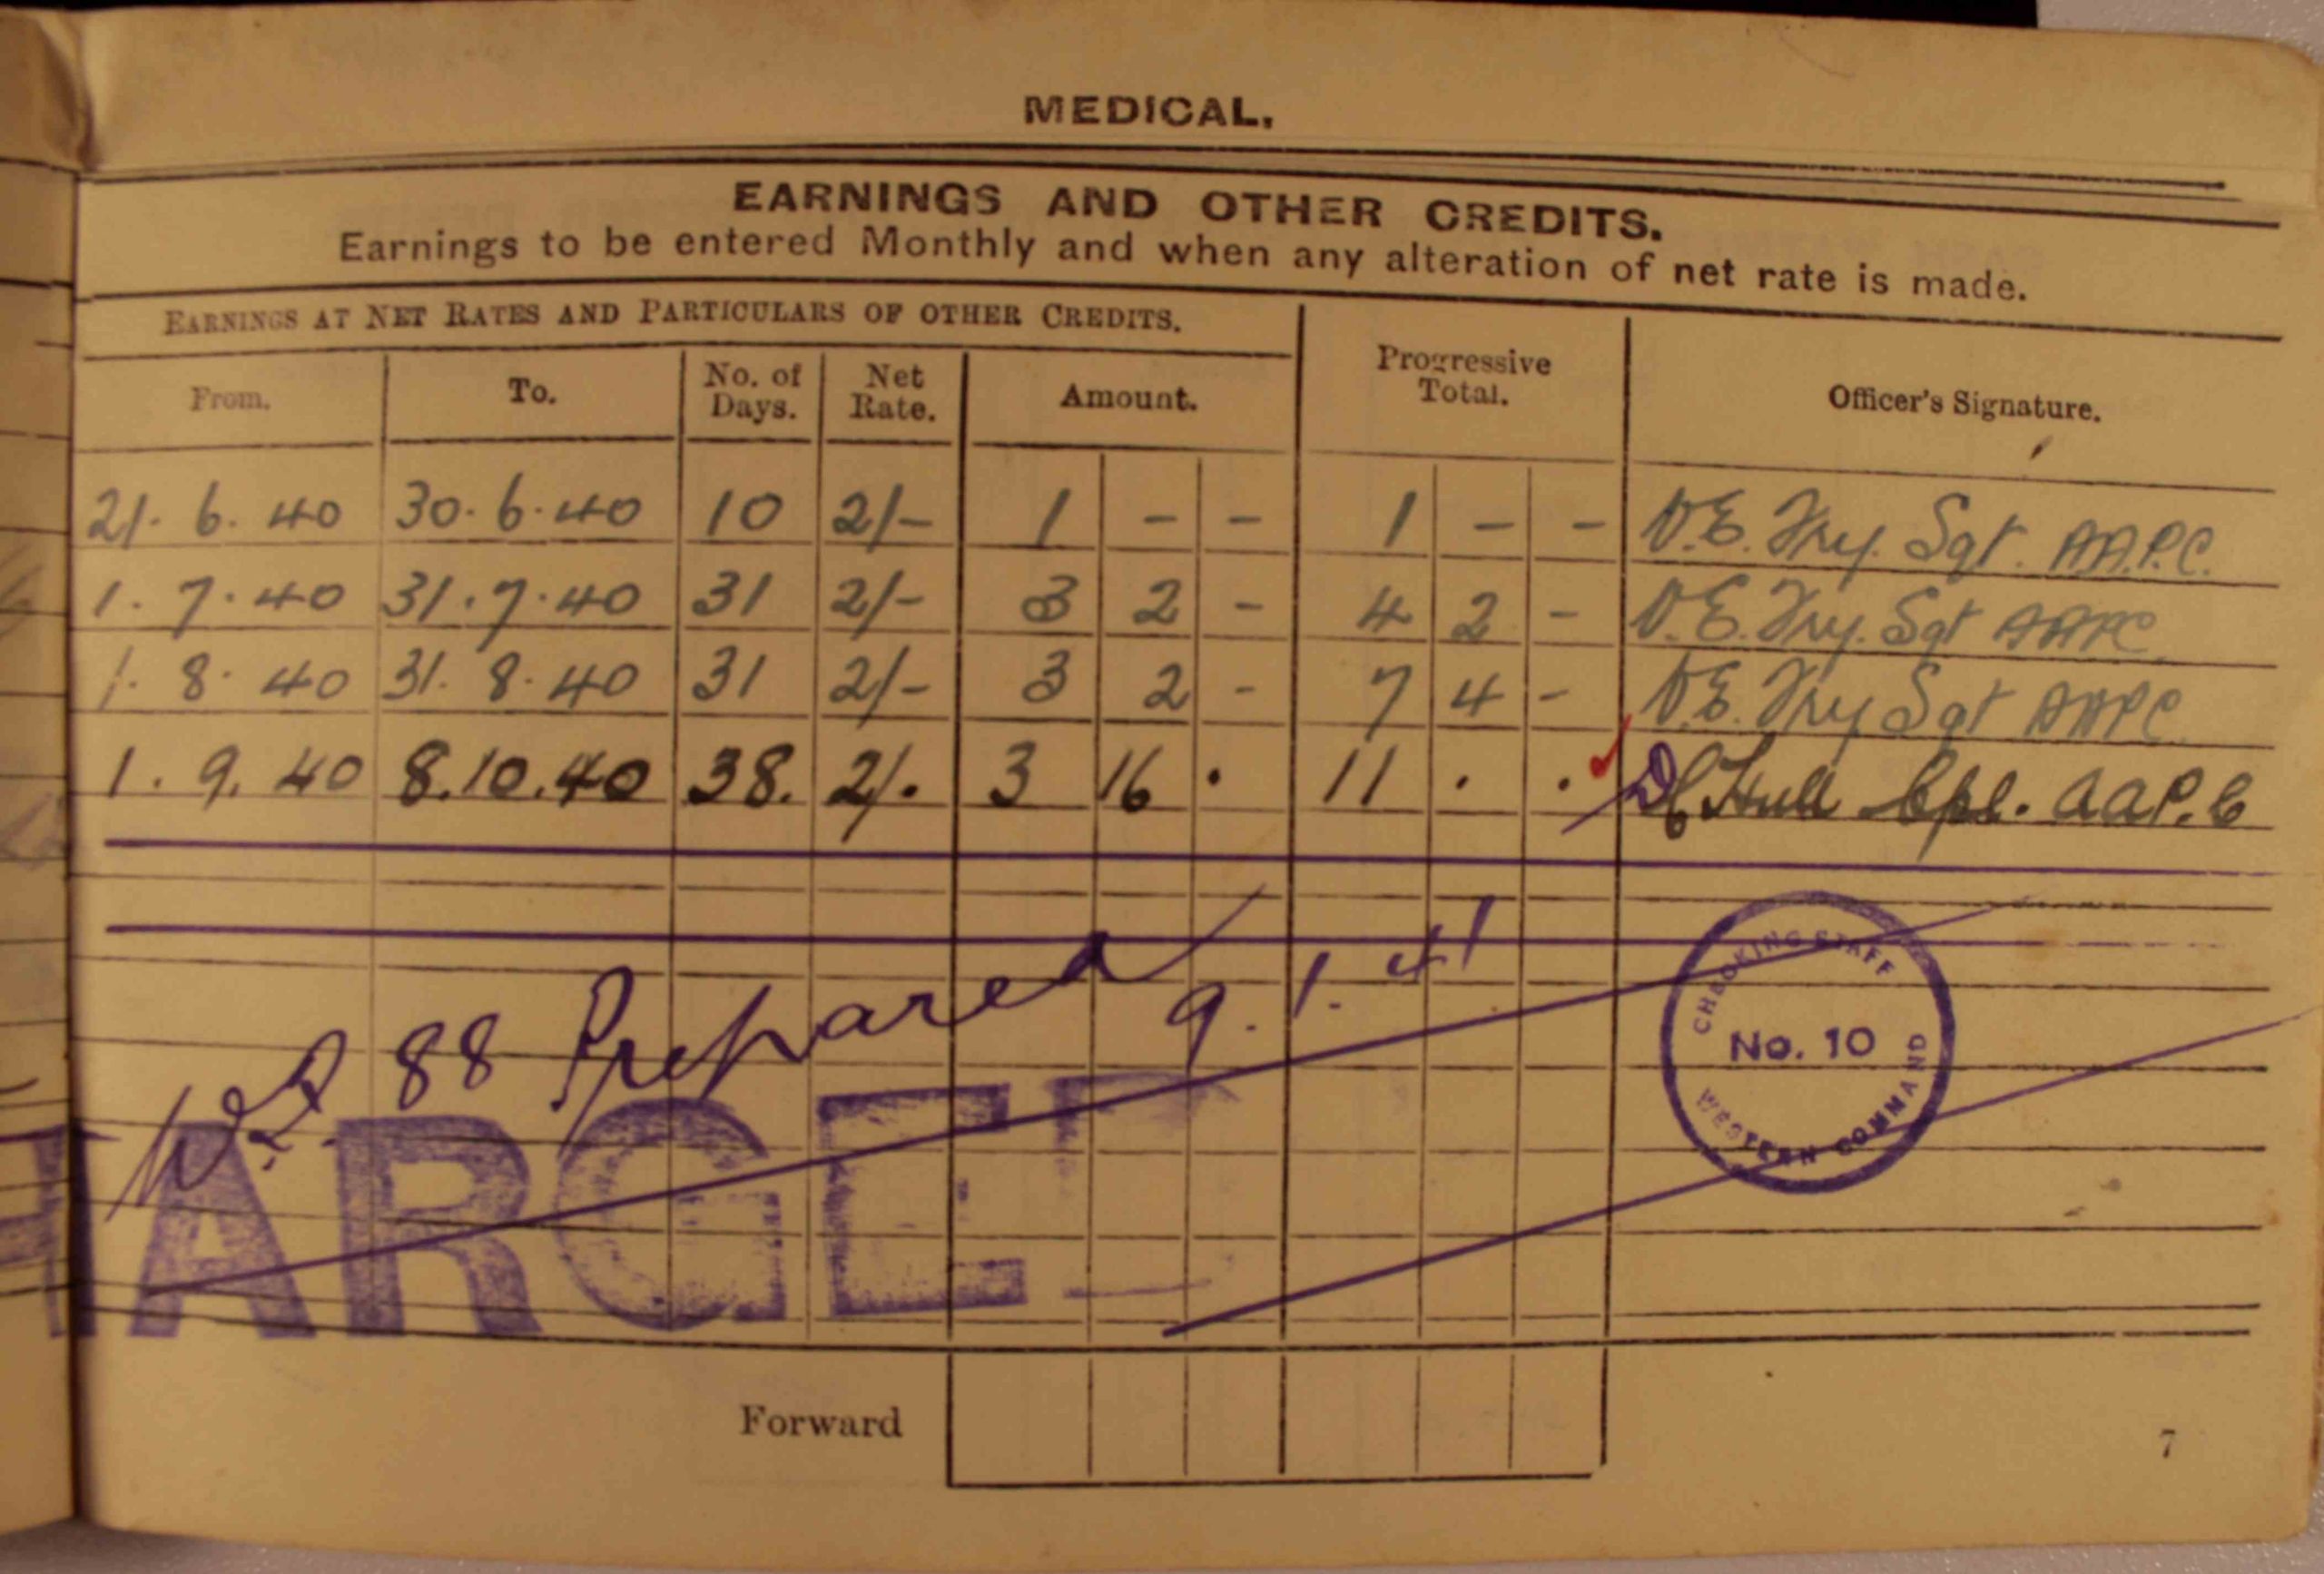 MEDICAL.
EARNINGS AND OTHER CREDITS.
Earnings to be entered Monthly and when any alteration of net rate is made.
EARNINGS AT NET RATES AND PARTICULARS OF OTHER CREDITS.
From. To. No. of Days. Net Rate. Amount. Progressive Total. Officer's Signature.
21. 6. 40 30. 6. 40 10 2/- 1 - - 1 - - Sgt. A.A.P.C.
1. 7. 40 31. 7. 40 31 2/- 3 2 - 4 2 - Sgt AAPC
1. 8. 40 31. 8. 40 31 2/- 3 2 - 7 4 - Sgt AAPC
1. 9. 40 8.10.40 38. 2/. 3 16 . 11 . . Hull Cpl. AAP.C
88 Prepared 9.1.41
CHECKING STAFF
No. 10
WESTERN COMMAND
HARGED
Forward
7